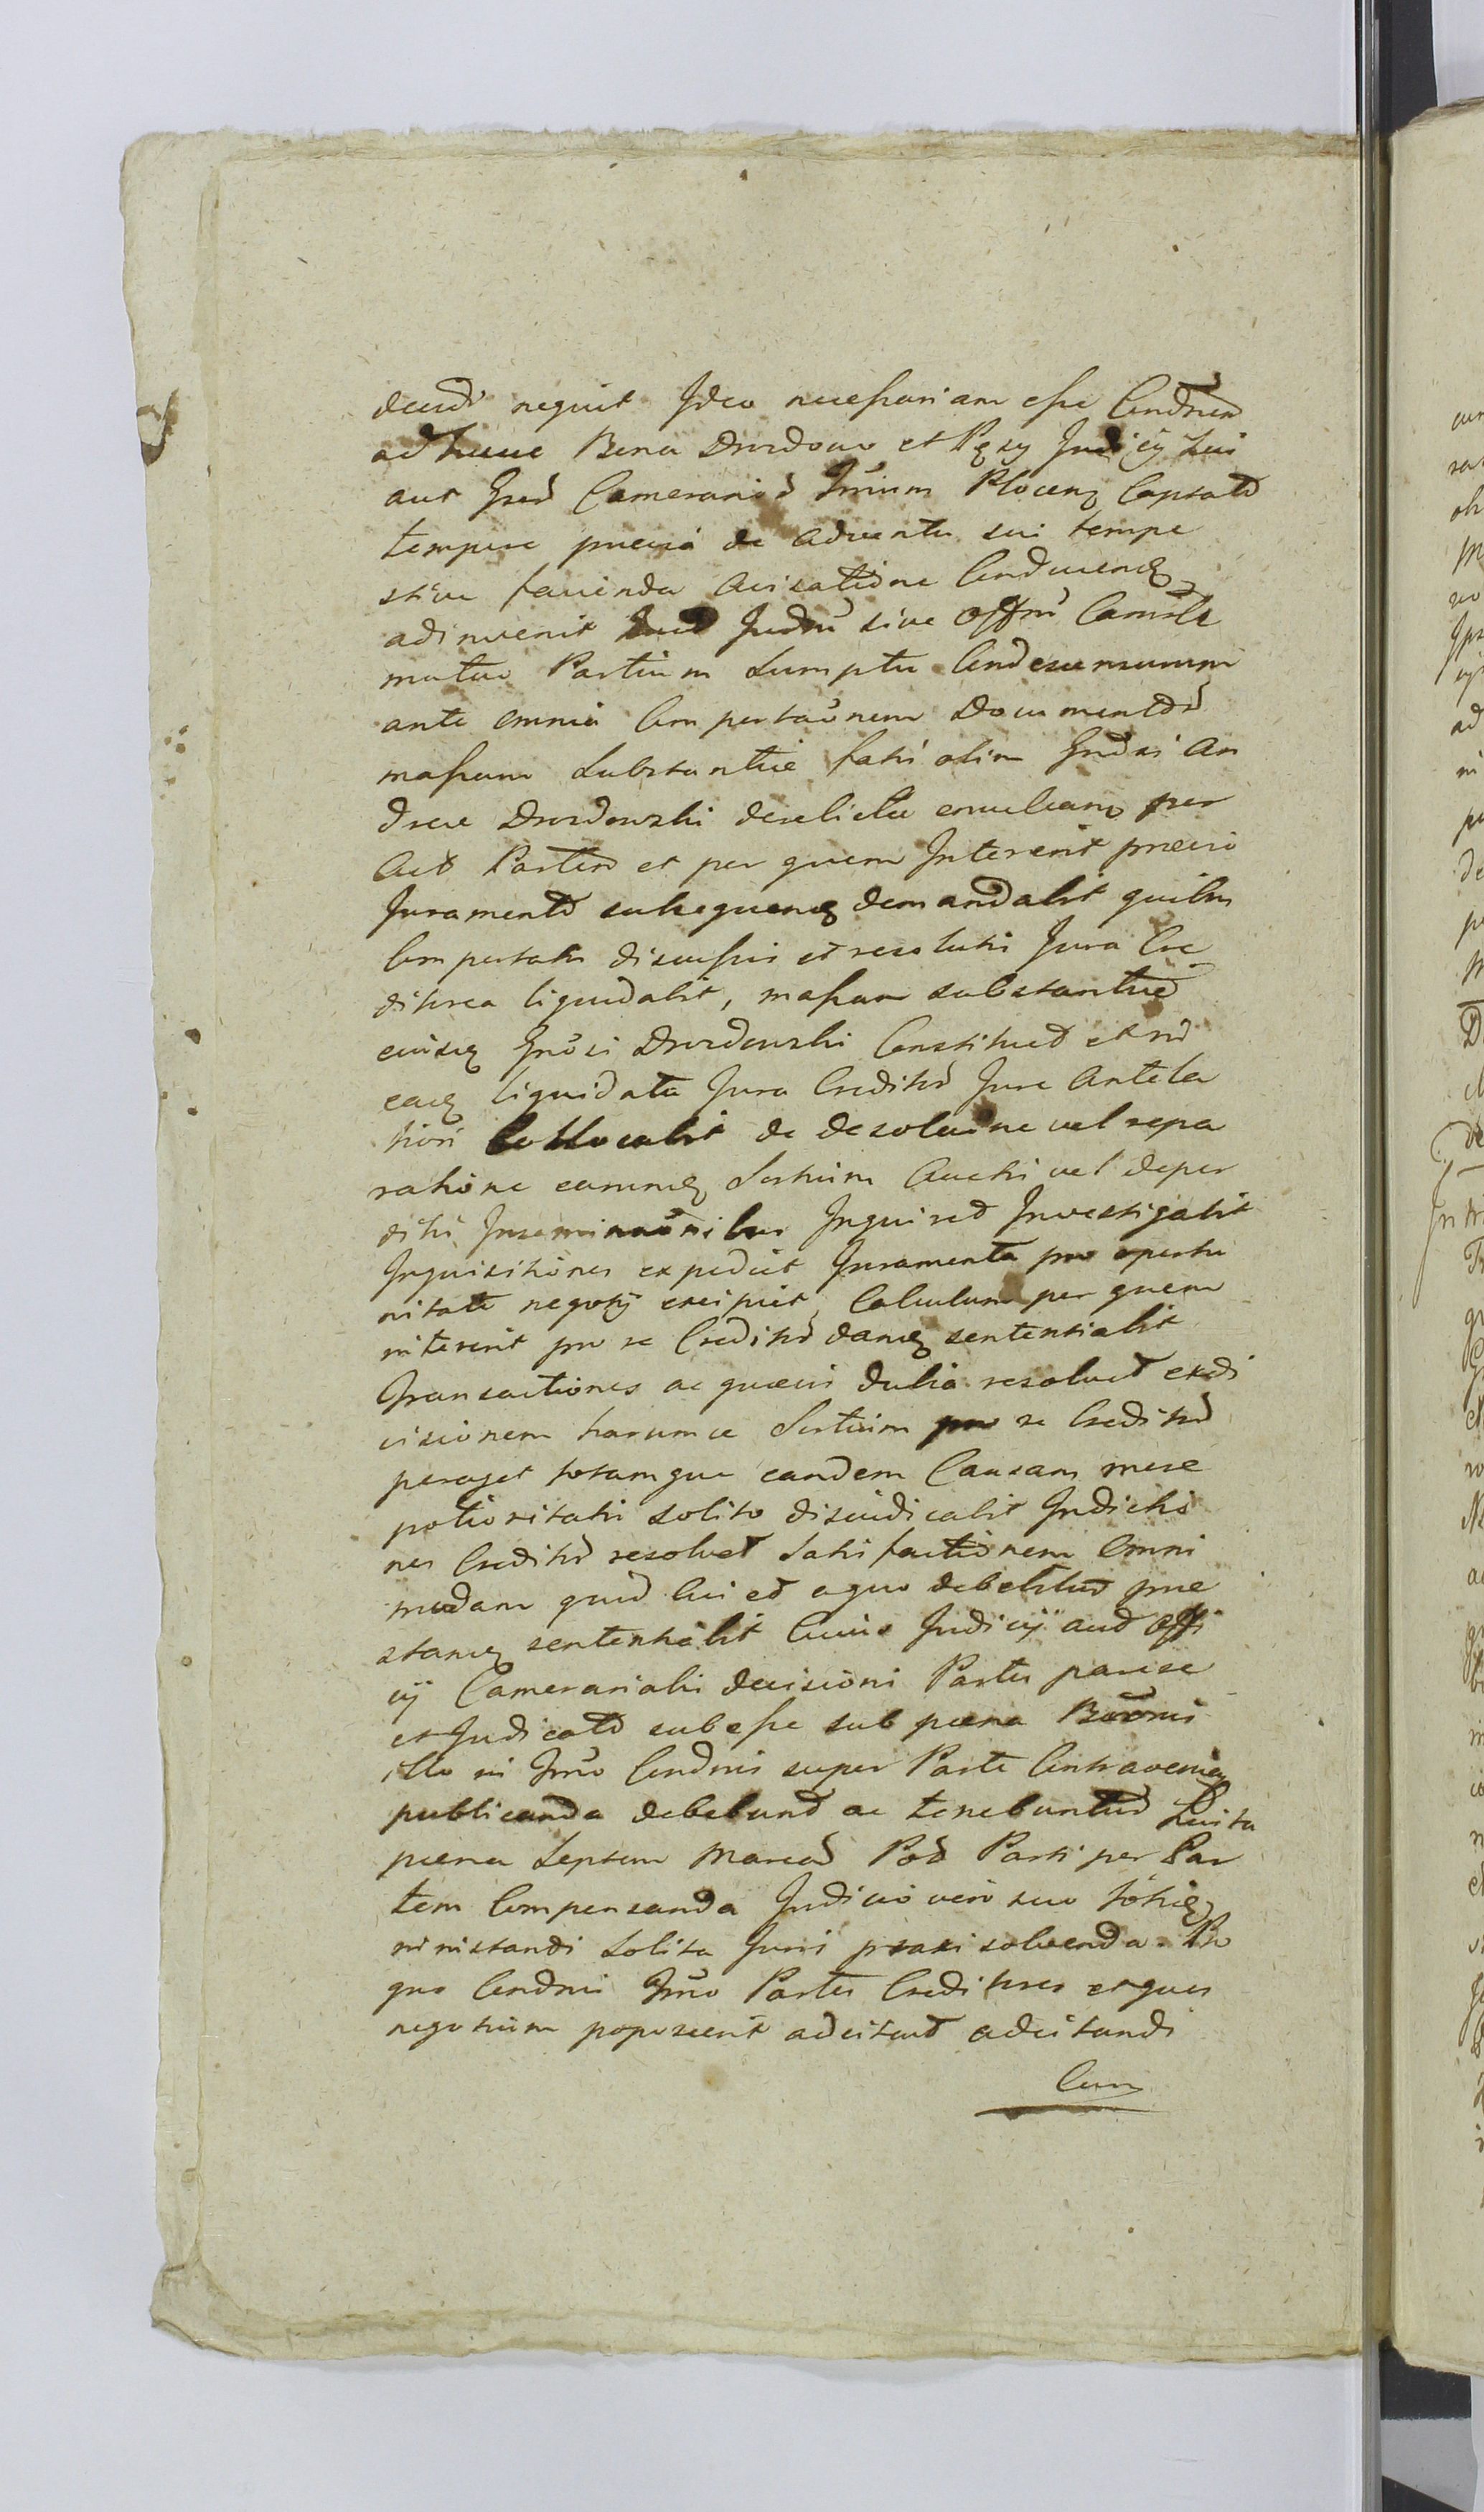 decidi nequit Ideo necessariam esse Condnem
ad hucce Bona Drozdowo et Pęsy Judicij sui
aut Gsed Camerariod Trium Plocenz Captatd
tempore praevia de adventu sui tempe
stive facienda avisatione Conducenz
adinvenit Judm sive Offm Camrle
mutuo Partium Sumptu Condescensurum
ante omnia Comportaonem Documentor
massam Substantiae fati olim Gndsi An
dreae Drozdowski derelictae evinceam per
Act Partem et per quem Intererit praevio
Juramento subsequenz demandabit quibus
Comportatis discussis et resolutis Jura Cre
ditorea liquidabit, massam substantiae
eiusdz Gnosi Drozdowski Constituet et in
eaqz liquidata Jura Creditor Jure Antela
tiori Collocabit de desolaone vel repa
ratione earumqz Sortium Aucti vel deper
diti Inseminaonibus Inquiret Investigabit
Inquisitiones expediet Juramenta pro oportu
nitate negotij excipiet, Calculum per quem
intererit pro re Creditor danqz sententiabit
Transactiones ac quaevis dubia resolvet exdi
visionem harumce Sortium pro re Creditor
peraget totamque eandem Causam more
potioritatis solito disiudicabit Indictio
nes Creditor resolvet Satisfactionem Omni
modam quid Cui et a quo debebitur prae
stanqz sententiabit Cuius Judicij aut Offi
cij Camerarialis decisioni Partes parere
et Judicato subesse sub poena Baonis
illo in Tmo Condnis super Parte Contravenien
publicanda debebunt ac tenebuntur Luita
poena Septem Marcar Pod Parti per Par
tem Compensanda Judicio vero suo toties
ninistandi Solita Juris praxi solvenda. Pro
quo Condnis Tmo Partes Creditores et quos
negotium poposcerit adcitent adcitandi
Cum